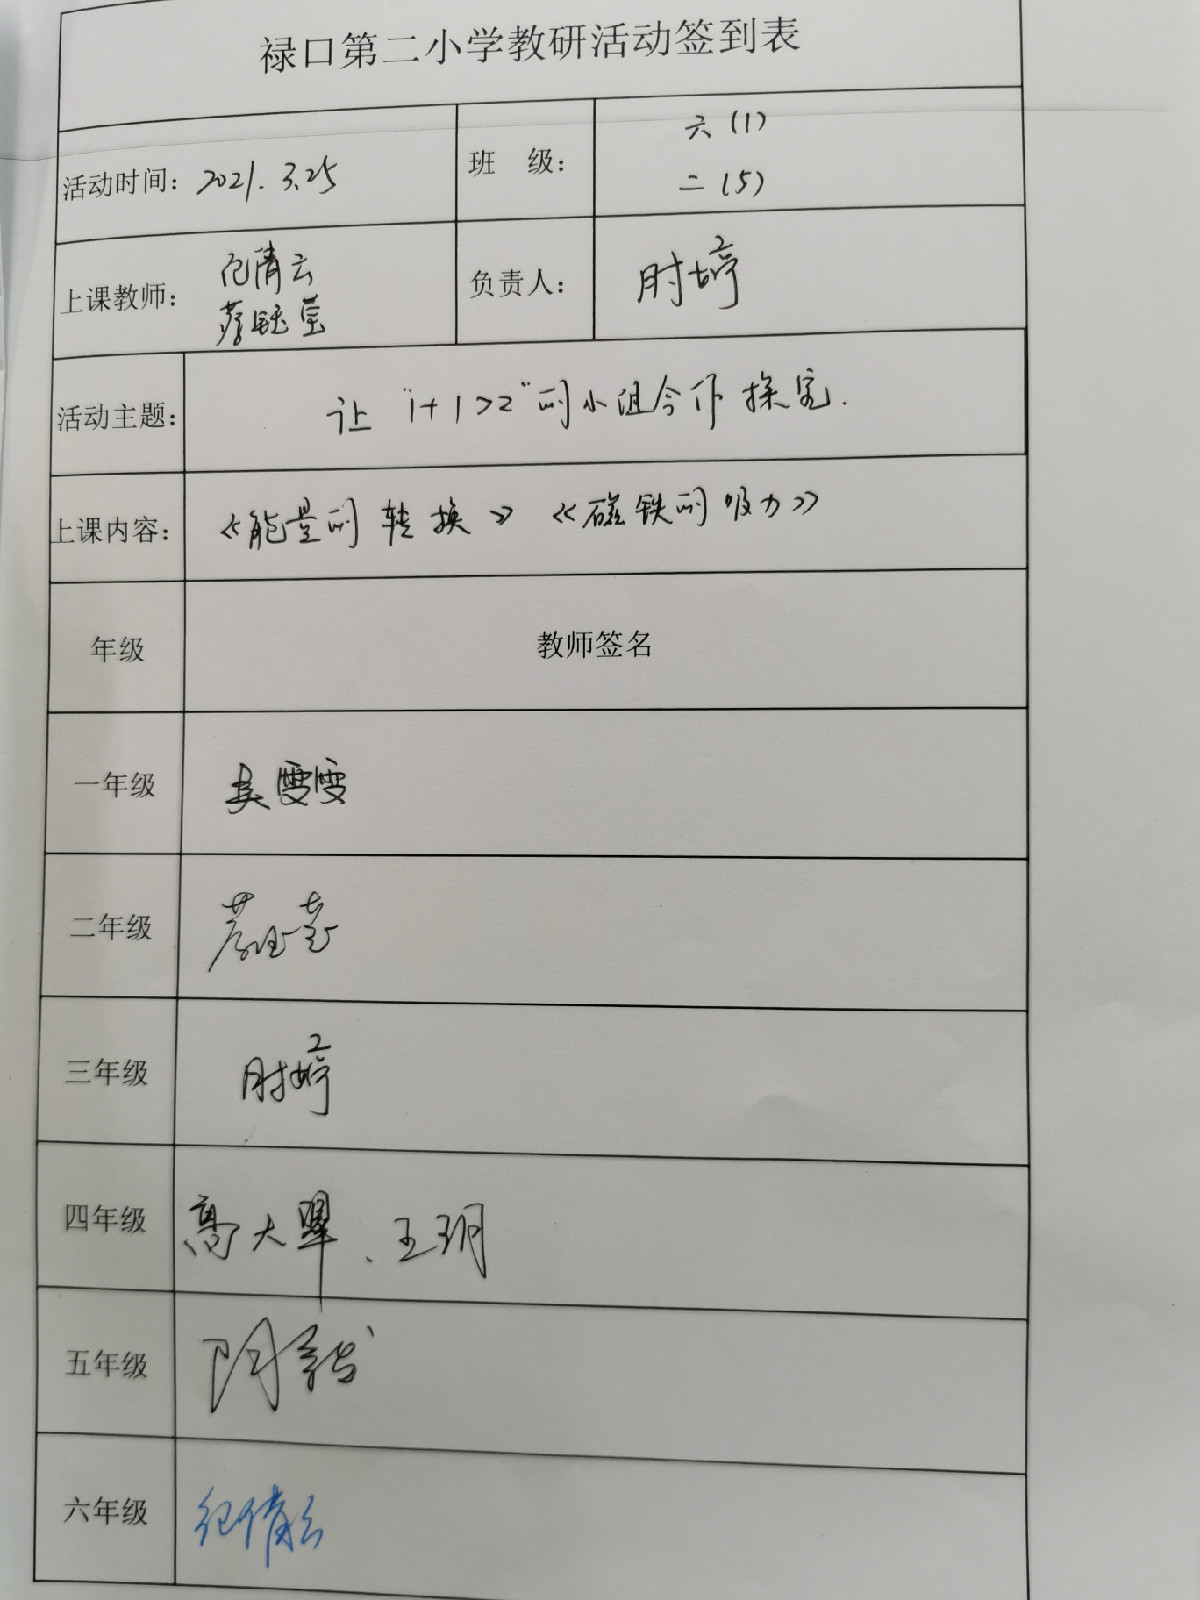 禄口第二小学教研活动签到表
活动时间：2021.3.25
班 级：
六（1）
二（5）
上课教师：
倩云
蔡钰莹
负责人：
肘婷
活动主题：
让"1+1>2"的小组合作探究.
上课内容：
《能量的转换》《磁铁的吸力》
年级
教师签名
一年级
吴雯雯
二年级
蔡钰莹
三年级
肘婷
四年级
高大翠、王玥
五年级
六年级
纪倩云